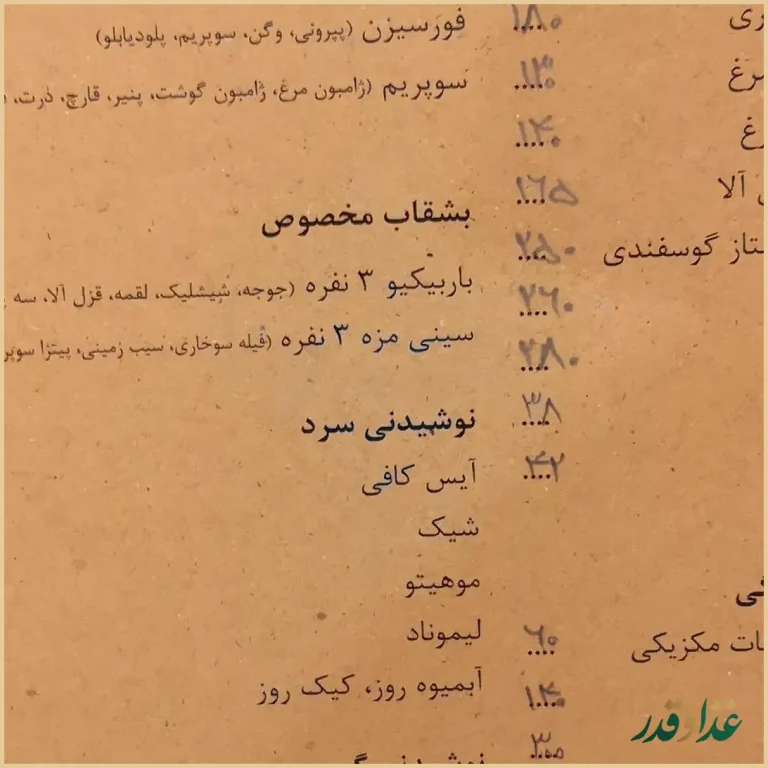 ری ۱۸۰
مرغ ۱۳۰
غ ۱۴۰
آلا ۱۶۵
تاز گوسفندی ۲۵۰
۲۶۰
۲۸۰
۳۸
۴۲
ات مکزیکی ۶۰
۱۴۰
فورسیزن (پپرونی، وگن، سوپریم، پلودیابلو)
سوپریم (ژامبون مرغ، ژامبون گوشت، پنیر، قارچ، ذرت،
بشقاب مخصوص
باربیکیو ۳ نفره (جوجه، شیشلیک، لقمه، قزل آلا، سه
سینی مزه ۳ نفره (فیله سوخاری، سیب زمینی، پیتزا سوپر
نوشیدنی سرد
آیس کافی
شیک
موهیتو
لیموناد
آبمیوه روز، کیک روز
غذا و قدر